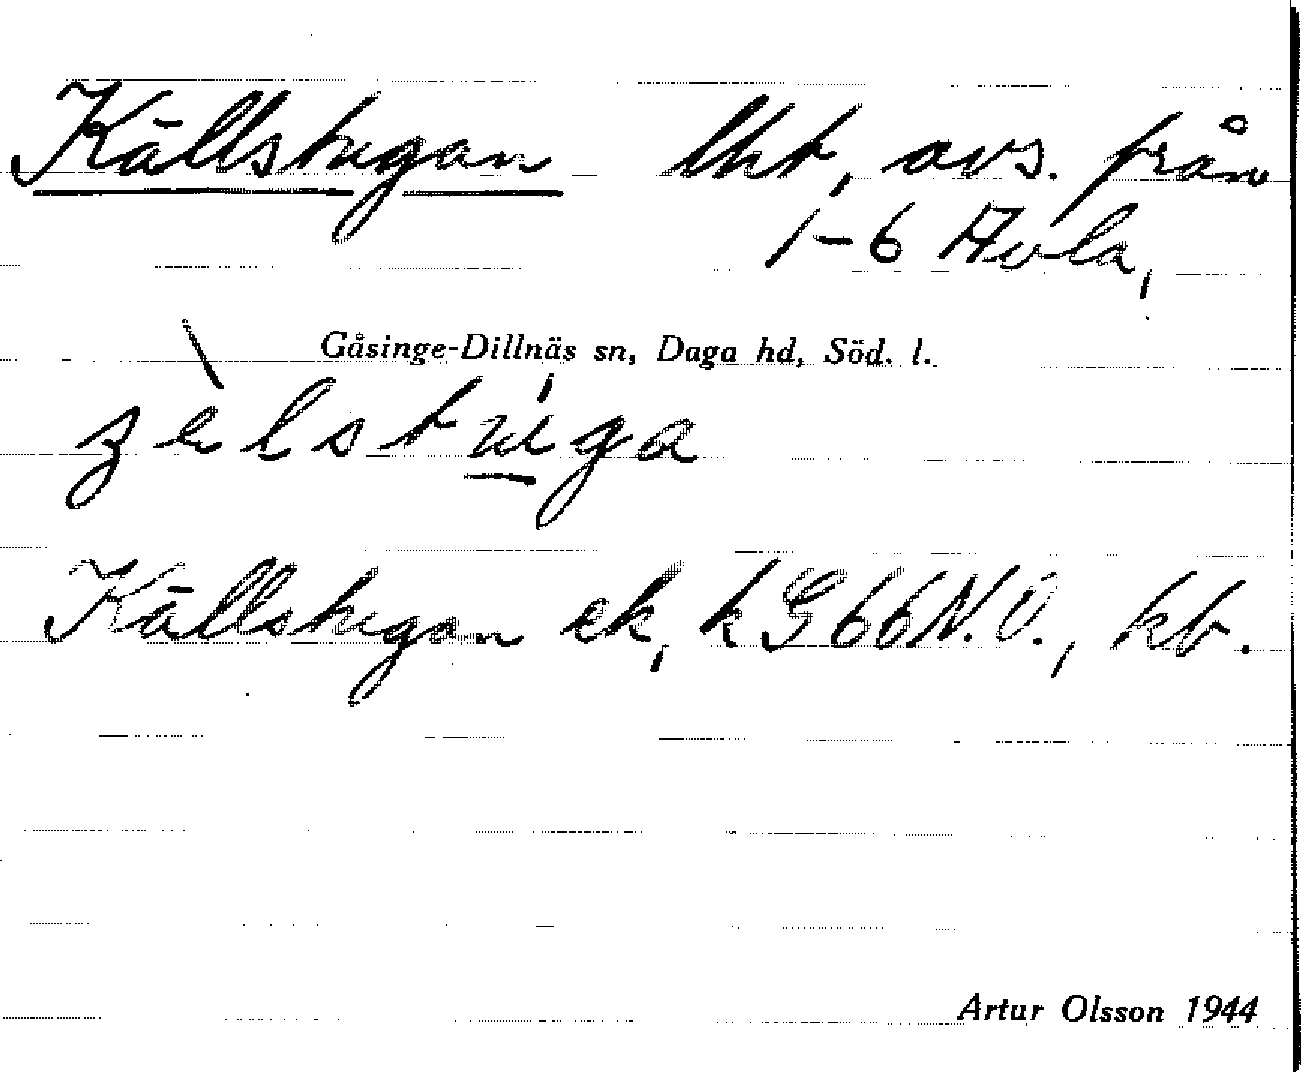 Källstugan lht, avs. från
1-6 Avla,
Gåsinge-Dillnäs sn, Daga hd, Söd. l.
Källstugan ek, k G66 N.V., kb.
Artur Olsson 1944